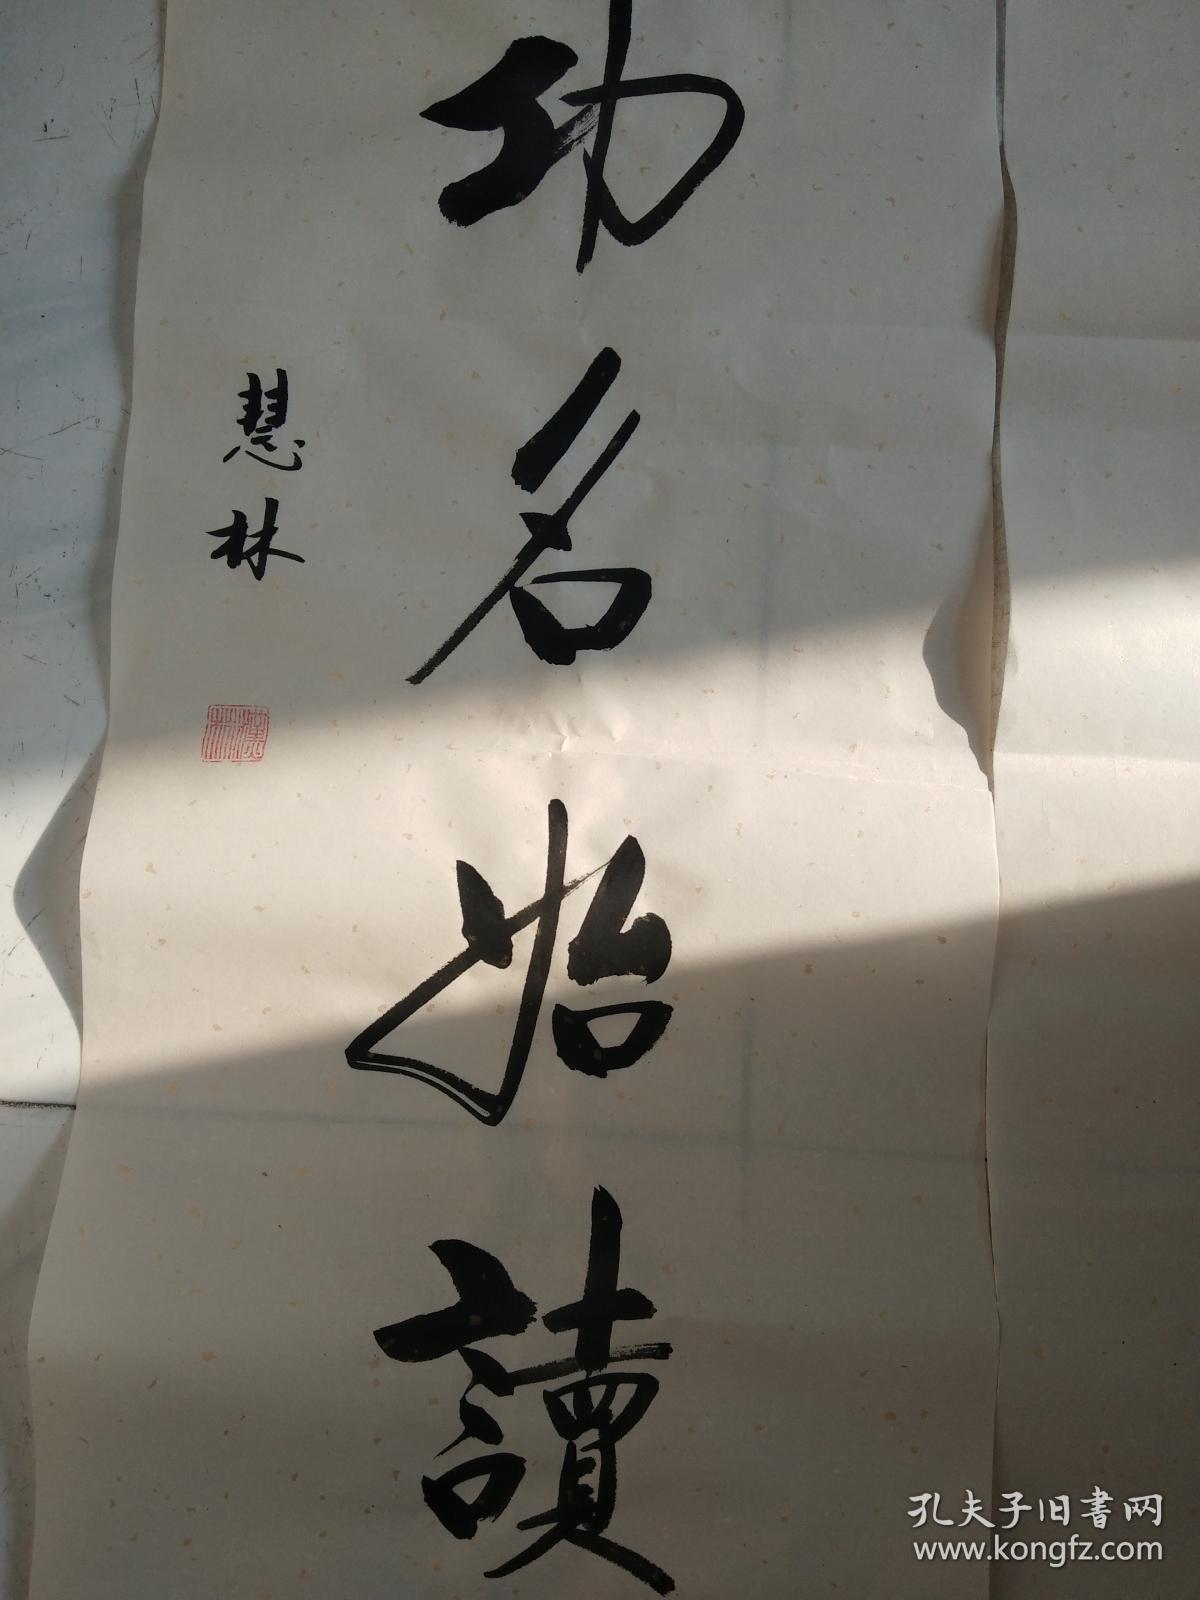 功名始讀
慧林
孔夫子旧書网
www.kongfz.com